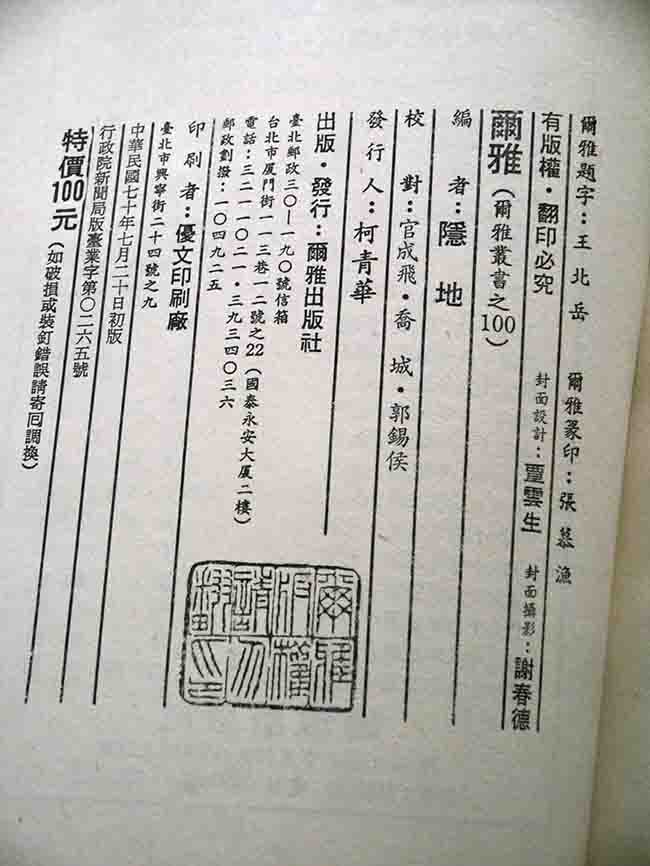 爾雅題字：王北岳　爾雅篆印：張慕漁
有版權·翻印必究　封面設計：覃雲生　封面攝影：謝春德
爾雅（爾雅叢書之100）
編者：隱地
校對：官成飛·喬城·郭錫侯
發行人：柯青華
出版·發行：爾雅出版社
臺北郵政三〇—一九〇號信箱
台北市厦門街一一三巷一二號之22（國泰永安大厦二樓）
電話：三二一一〇二一·三九三四〇三六
郵政劃撥：一〇四九二五
印刷者：優文印刷廠
臺北市興寧街二十四號之九
中華民國七十年七月二十日初版
行政院新聞局版臺業字第〇二六五號
特價100元（如破損或裝釘錯誤請寄回調換）
爾雅
版權
請勿
翻印